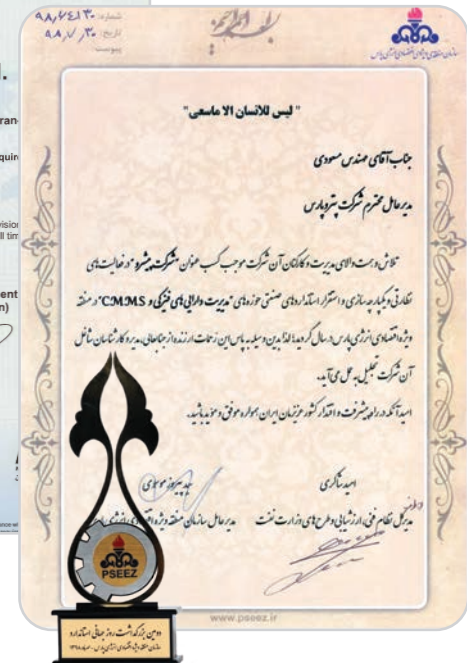 شماره: ۹۸/۷۴۸۳۰
تاریخ: ۹۸/۷/۳۰
پیوست:
سازمان منطقه ویژه اقتصادی انرژی پارس
" لیس للانسان الا ماسعی"
جناب آقای مهندس مسعودی
مدیرعامل محترم شرکت پتروپارس
تلاش و همت والای مدیریت و کارکنان آن شرکت موجب کسب عنوان "شرکت پیشرو" در فعالیت های
نظارتی و یکپارچه سازی و استقرار استانداردهای صنعتی حوزه های "مدیریت دارایی های فیزیکی و C.M.M.S" در منطقه
ویژه اقتصادی انرژی پارس در سال گردید. لذا بدین وسیله به پاس این زحمات ارزنده از جنابعالی، مدیر و کارشناسان شاغل
آن شرکت تجلیل به عمل می آید.
امید آنکه در راه پیشرفت و اقتدار کشور عزیزمان ایران همواره موفق و موید باشید.
امید شاکری
سید پیروز موسوی
مدیرکل نظام فنی، ارزشیابی و طرح های وزارت نفت
مدیرعامل سازمان منطقه ویژه اقتصادی انرژی پارس
www.pseez.ir
PSEEZ
دومین بزرگداشت روز جهانی استاندارد
سازمان منطقه ویژه اقتصادی انرژی پارس - مهرماه ۱۳۹۸